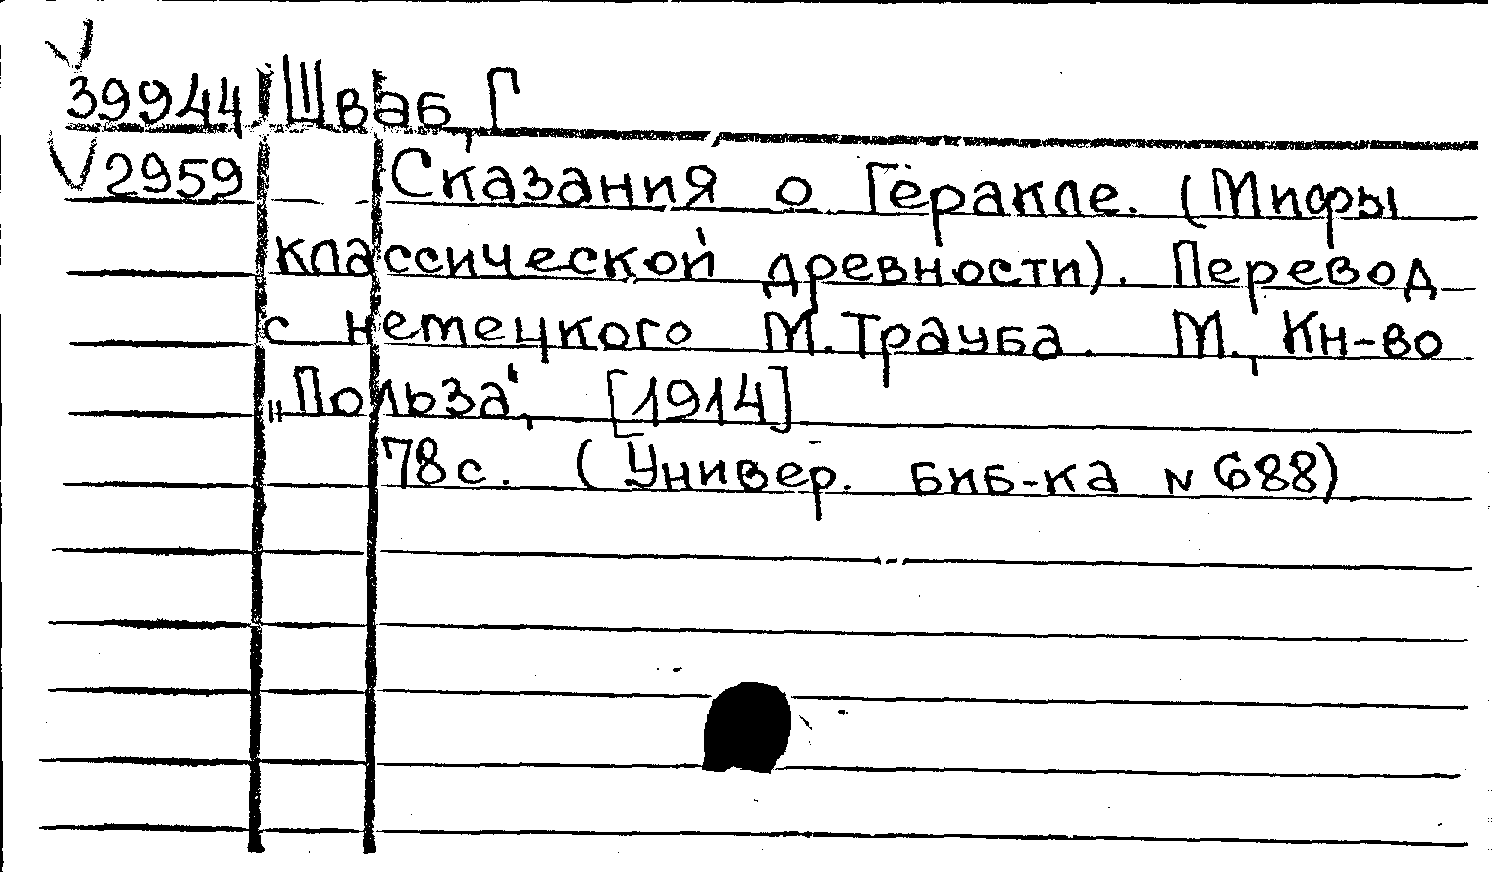 39944 Шваб, Г
V 2959 Сказания о Геракле. (Мифы
классической древности). Перевод
с немецкого М. Трауба. М., Кн-во
„Польза“, [1914]
78 с. (Универ. биб-ка N 688)